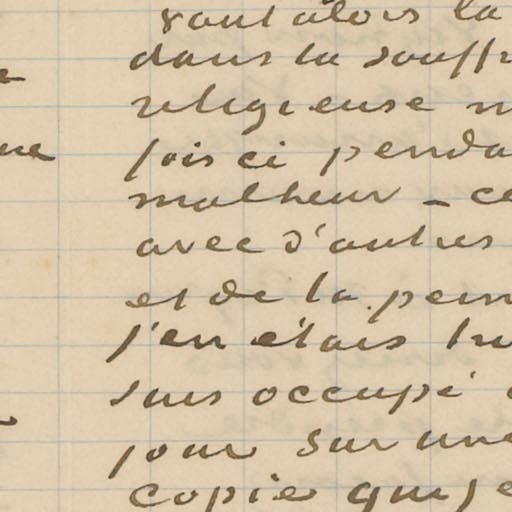 vaut alors la
dans la souffr
religieuse m
ne
fois ci penda
malheur - ce
avec d'autres
et de la pein
j'en étais tr
suis occupé
jour sur une
copie que je